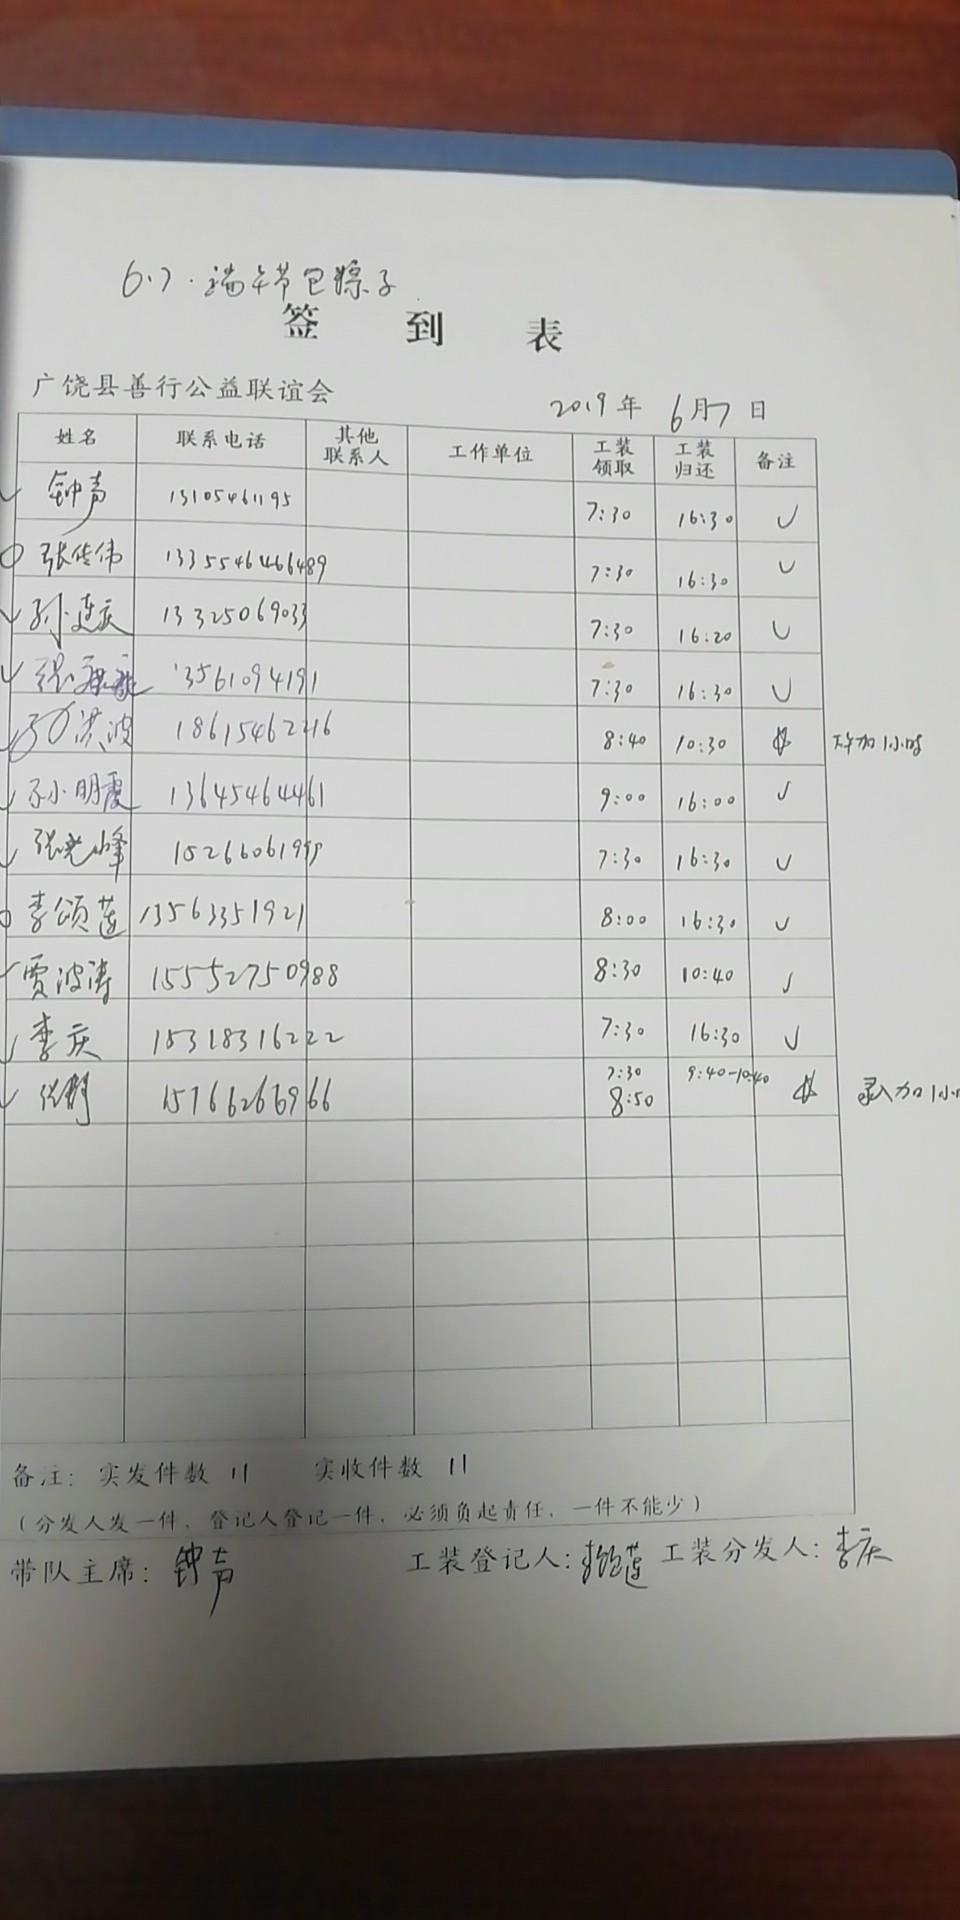 6.7.端午节包粽子
签 到 表
广饶县善行公益联谊会 2019年 6月7日
姓名 联系电话 其他联系人 工作单位 工装领取 工装归还 备注
钟声 13105461195 7:30 16:30 ✓
张传伟 7:30 16:30 ✓
孙连庆 13325069033 7:30 16:20 ✓
13561094191 7:30 16:30 ✓
洪波 18615462216 8:40 10:30 加1小时
孙小明霞 13645464461 9:00 16:00 ✓
张光峰 152660619 7:30 16:30 ✓
李颂莲 13563351921 8:00 16:30 ✓
贾波涛 15552750988 8:30 10:40 ✓
李庆 15318316222 7:30 16:30 ✓
15766266966 7:30 8:50 9:40-10:40 录入加1小
备注: 实发件数 11 实收件数 11
(分发人发一件,登记人登记一件,必须负起责任,一件不能少)
带队主席: 钟声 工装登记人: 李颂莲 工装分发人: 李庆